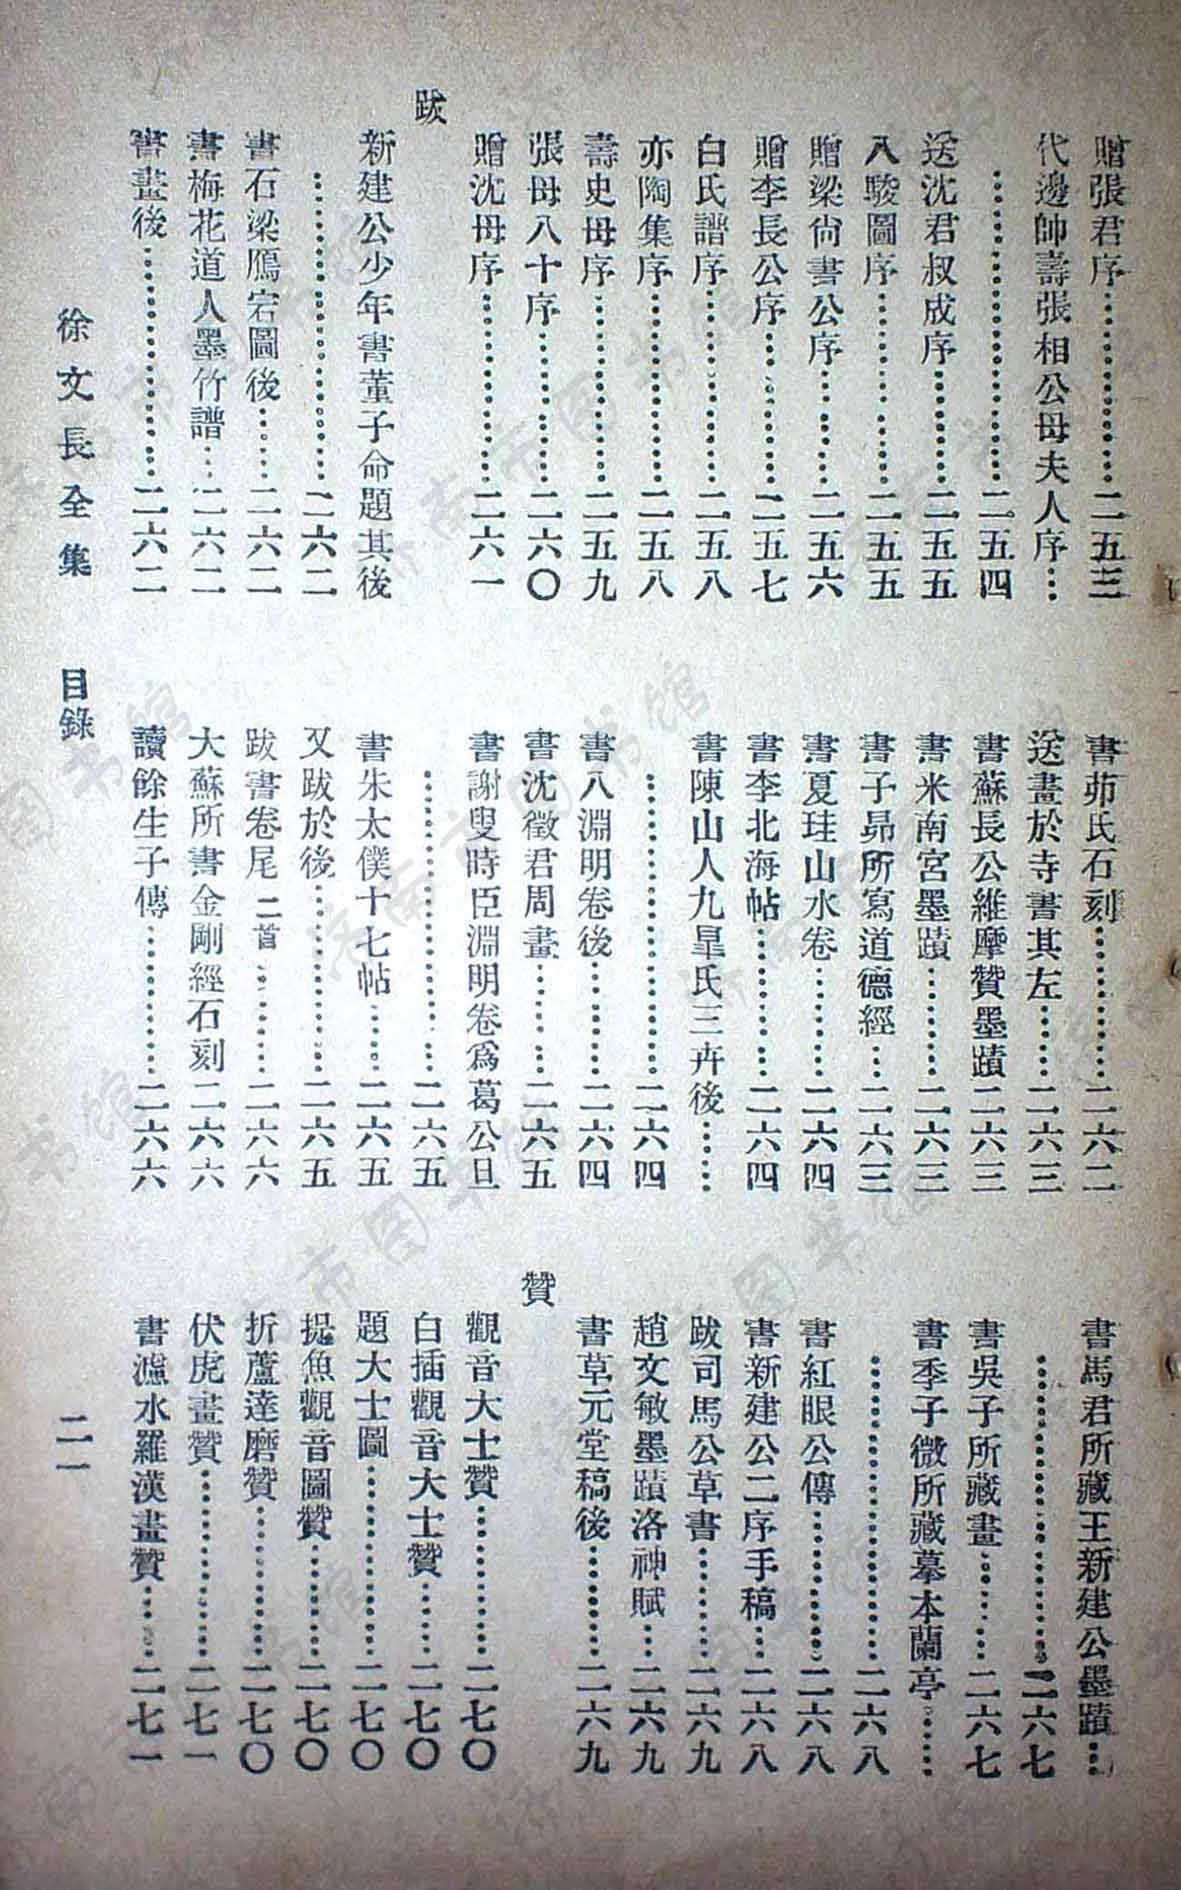 贈張君序…………二五三
代邊帥壽張相公母夫人序…
…………二五四
送沈君叔成序…………二五五
八駿圖序…………二五五
贈梁尙書公序…………二五六
贈李長公序…………二五七
白氏譜序…………二五八
亦陶集序…………二五八
壽史母序…………二五九
張母八十序…………二六〇
贈沈母序…………二六一
跋
新建公少年書董子命題其後
…………二六二
書石梁鴈宕圖後……二六二
書梅花道人墨竹譜…二六二
書畫後…………二六二
書茆氏石刻…………二六二
送畫於寺書其左……二六三
書蘇長公維摩贊墨蹟二六三
書米南宮墨蹟………二六三
書子昻所寫道德經…二六三
書夏珪山水卷………二六四
書李北海帖…………二六四
書陳山人九臯氏三卉後……
…………二六四
書八淵明卷後………二六四
書沈徵君周畫………二六五
書謝叟時臣淵明卷爲葛公旦
…………二六五
書朱太僕十七帖……二六五
又跋於後…………二六五
跋書卷尾二首………二六六
大蘇所書金剛經石刻二六六
讀餘生子傳…………二六六
書馬君所藏王新建公墨蹟…
…………二六七
書吳子所藏畫………二六七
書季子微所藏摹本蘭亭……
…………二六八
書紅眼公傳…………二六八
書新建公二序手稿…二六八
跋司馬公草書………二六九
趙文敏墨蹟洛神賦…二六九
書草元堂稿後………二六九
贊
觀音大士贊…………二七〇
白描觀音大士贊……二七〇
題大士圖…………二七〇
提魚觀音圖贊………二七〇
折蘆達磨贊…………二七〇
伏虎畫贊…………二七一
書濾水羅漢畫贊……二七一
徐文長全集 目錄 二一